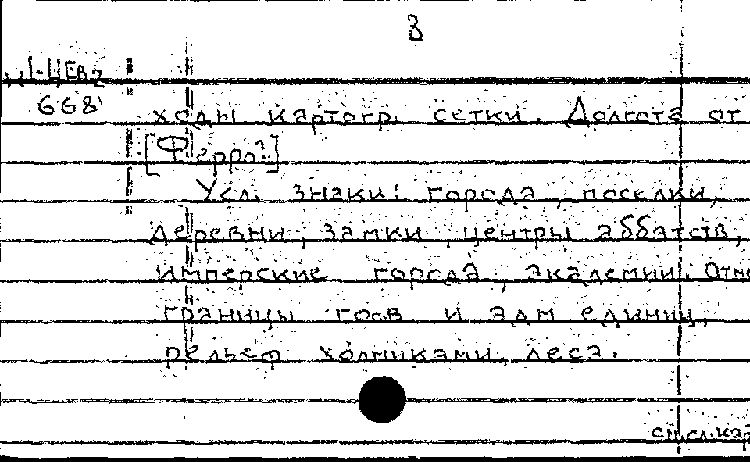 3
668
ходы картогр. сетки. Долгота от
[Ферро?]
Усл. знаки: города, поселки,
деревни, замки, центры аббатств,
имперские города, академии. Отм
границы гос-в и адм единиц,
рельеф холмиками, леса.
см. сл. кар